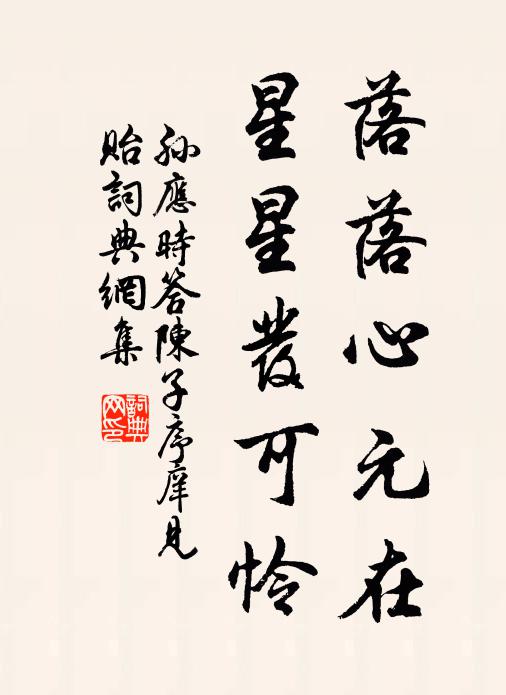 落落心元在
星星發可怜
孙應時答陳子序庠見
貽詞典網集
詞典网印